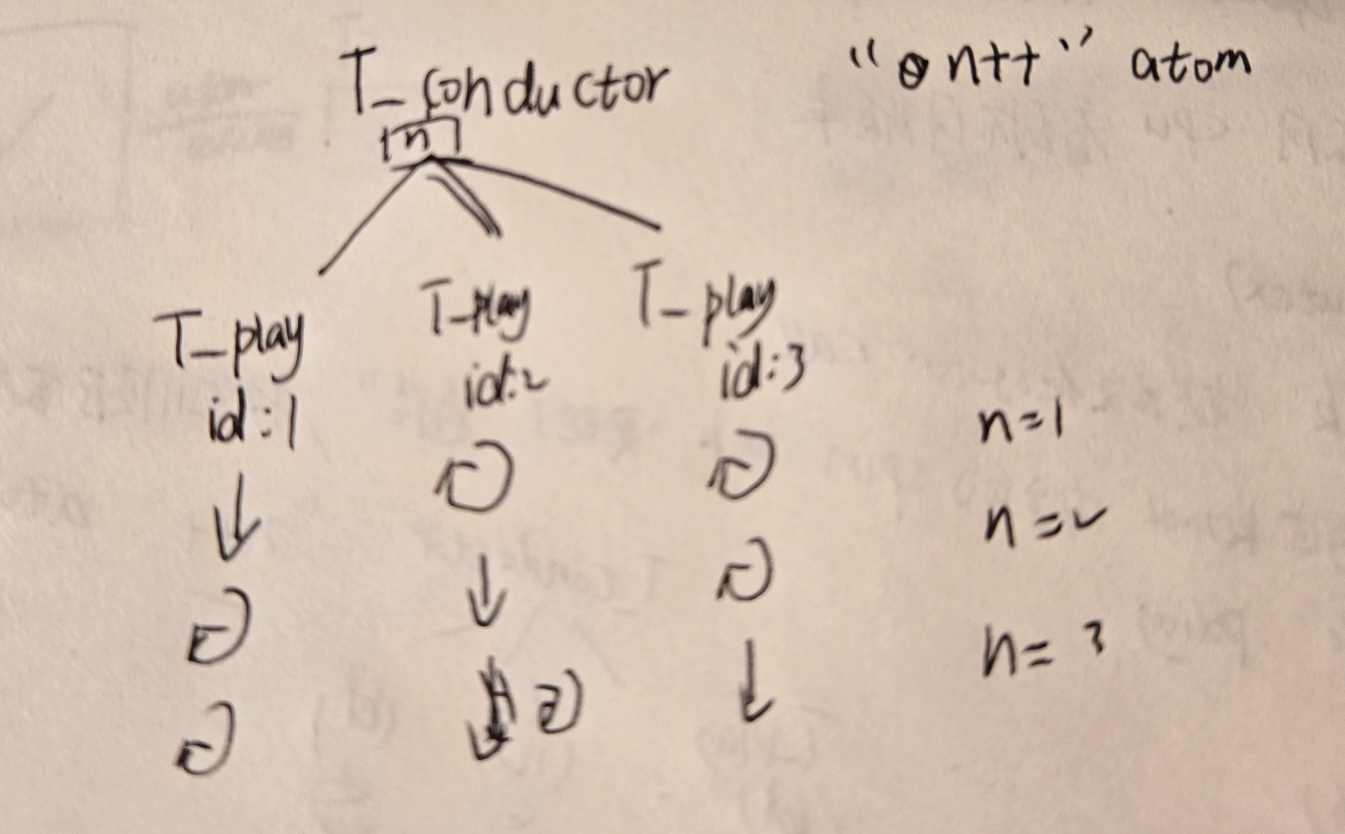 T_conductor
"n++" atom
n
T_play
id:1
T_play
id:2
T_play
id:3
n=1
n=2
n=3